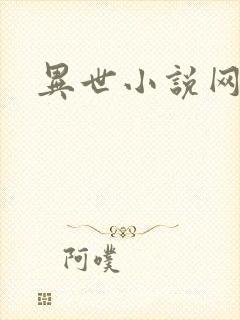 異世小説网
阿噗